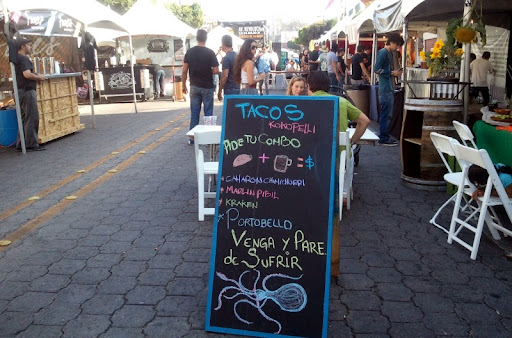 TACOS
KOKOPELLI
PIDE TU COMBO
+ = $
* CAMARON CHIMICHURRI
* MARLIN PIBIL
* KRAKEN
* PORTOBELLO
VENGA Y PARE
de SUFRIR